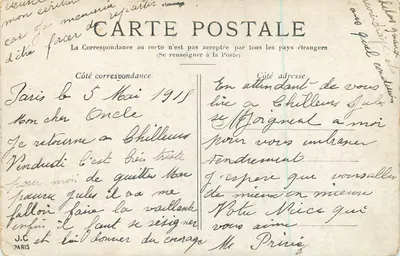 CARTE POSTALE
La Correspondance au recto n'est pas acceptée par tous les pays étrangers
(Se renseigner à la Poste)
Côté correspondance
Paris le 5 Mai 1918
Mon cher Oncle
Je retourne a Chilleurs
Vendredi c'est bien triste
pour moi de quitter Mon
pauvre Jules il va me
falloir faire la vaillante
enfin il faut se résigner
et lui donner du courage
car
d'être forcer de repartir
J.C
PARIS
Côté adresse
En attendant de vous
lire a Chilleurs Jules
se Joignent a moi
pour vous embrasser
tendrement
J'espere que vous aller
de mieux en mieux
Votre Niece qui
vous aime
M